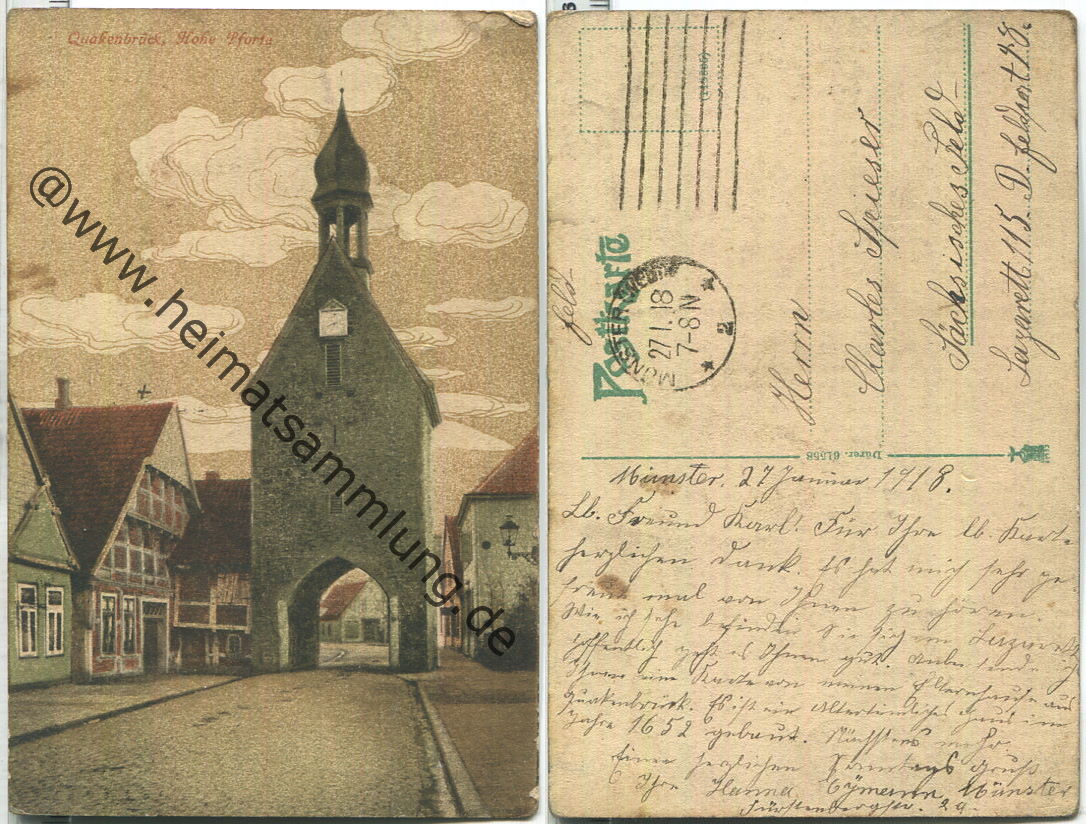 Quakenbrück, Hohe Pforte
@www.heimatsammlung.de
Feld-
Postkarte
MÜNSTER
27.1.18
7-8N
2
Herrn
Charles Spieser
Sächsisches Feld-
Lazarett 115. D. Feldpost 148.
Dürer. 61558
Münster, 27 Januar 1918.
Lb. Freund Karl! Für Ihre lb. Karte
herzlichen Dank. Es hat mich sehr ge
freut mal von Ihnen zu hören.
Wie ich sehe befinden Sie sich im Lazarett
hoffentlich geht es Ihnen gut. Anbei sende ich
Ihnen eine Karte von meinem Elternhause aus
Quakenbrück. Es ist ein Altertümliches Haus im
Jahre 1652 gebaut. Nächstens mehr.
Einen herzlichen Sonntags Gruß
Ihre Hanna Münster
Fürstenbergstr. 29.